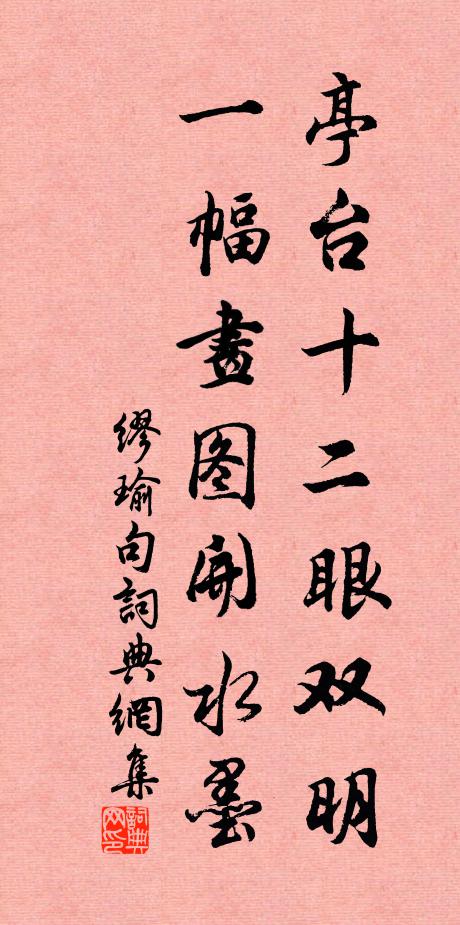 亭台十二眼双明
一幅畫图開水墨
繆瑜句詞典網集
詞典网印